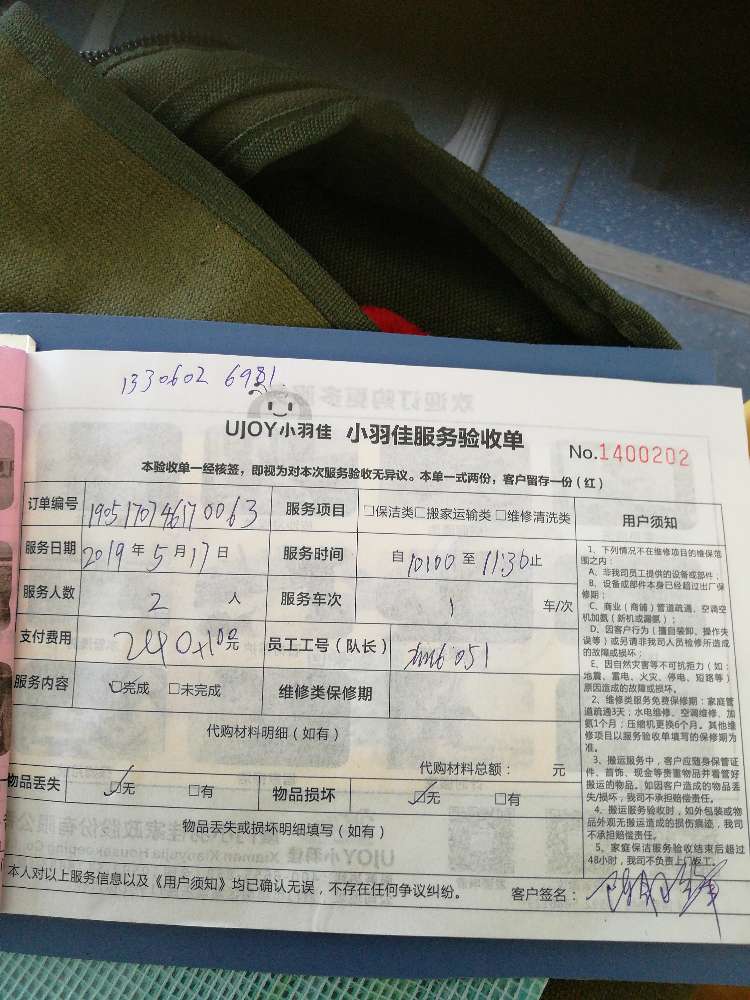 1330602 6981
UJOY小羽佳 小羽佳服务验收单
No.1400202
本验收单一经核签，即视为对本次服务验收无异议。本单一式两份，客户留存一份（红）
订单编号 服务项目 □保洁类□搬家运输类□维修清洗类
服务日期 2019年5月17日 服务时间 自10:00至11:30止
服务人数 2 人 服务车次 1 车/次
支付费用 员工工号（队长）
服务内容 ☑完成 □未完成 维修类保修期
代购材料明细（如有）
代购材料总额： 元
物品丢失 ☑无 □有 物品损坏 ☑无 □有
物品丢失或损坏明细填写（如有）
本人对以上服务信息以及《用户须知》均已确认无误，不存在任何争议纠纷。 客户签名：
用户须知
1、下列情况不在维修项目的维保范
围之内：
A、非我司员工提供的设备或部件；
B、设备或部件本身已经超过出厂保
修期；
C、商业（商铺）管道疏通、空调空
机加氨（新机或漏氨）；
D、因客户行为（擅自装卸、操作失
误等）或另请非我司人员检修所造成
的故障或损坏；
E、因自然灾害等不可抗拒力（如：
地震、雷电、火灾、停电、短路等）
原因造成的故障或损坏。
2、维修类服务免费保修期：家庭管
道疏通3天；水电维修、空调维修、加
氨1个月；压缩机更换6个月。其他维
修项目以服务验收单填写的保修期为
准。
3、搬运服务中，客户应随身保管证
件、首饰、现金等贵重物品并看管好
搬运的物品。如因客户造成的物品丢
失/损坏，我司不承担赔偿责任。
4、搬运服务验收时，如外包装或物
品外观无搬运造成的损伤痕迹，我司
不承担赔偿责任。
5、家庭保洁服务验收结束后超过
48小时，我司不负责上门返工。